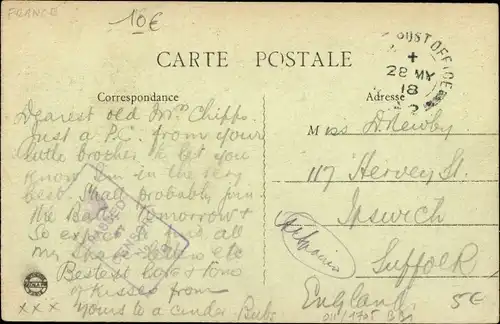 FRANCE
10€
CARTE POSTALE
POST OFFICE
28 MY
18
Correspondance
Adresse
Dearest old Mrs Chipps.
Just a P.C. from your
little brother to let you
know I'm in the very
best. Shall probably join
the Batt. Tomorrow &
so expect to find all
my letters etc
Bestest love & tons
of Kisses from
xxx yours to a cinder Bubs
Miss D. Newby
117 Hervey St.
Ipswich
Suffolk
England
5€